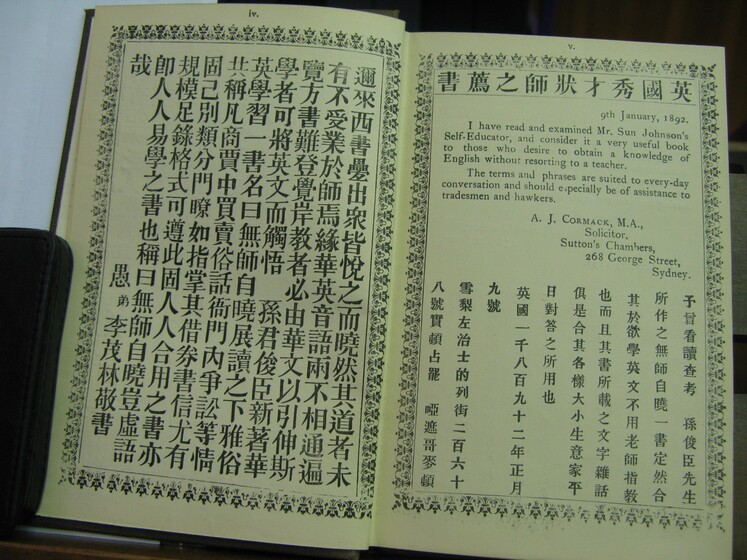 iv.
邇來西書疊出眾皆悅之而曉然其道者未
有不受業於師焉緣華英音語兩不相通遍
覽方書難登覺岸教者必由華文以引伸斯
學者可將英文而觸悟 孫君俊臣新著華
英學習一書名曰無師自曉展讀之下雅俗
共稱凡商賈中買賣俗話衙門內爭訟等情
固已別類分門瞭如指掌其借券書信尤有
規模足錄格式可遵此固人人合用之書亦
卽人人易學之書也稱曰無師自曉豈虛語
哉
愚弟李茂林敬書
v.
英國秀才狀師之薦書
9th January, 1892.
I have read and examined Mr. Sun Johnson's
Self-Educator, and consider it a very useful book
to those who desire to obtain a knowledge of
English without resorting to a teacher.
The terms and phrases are suited to every-day
conversation and should especially be of assistance to
tradesmen and hawkers.
A. J. CORMACK, M.A.,
Solicitor,
Sutton's Chambers,
268 George Street,
Sydney.
予曾看讀查考 孫俊臣先生
所作之無師自曉一書定然合
其於欲學英文不用老師指教
也而且其書所載之文字雜話
俱是合其各樣大小生意家平
日對答之所用也
英國一千八百九十二年正月
九號
雪梨左治士的列街二百六十
八號實頓占罷 啞遮哥麥頓